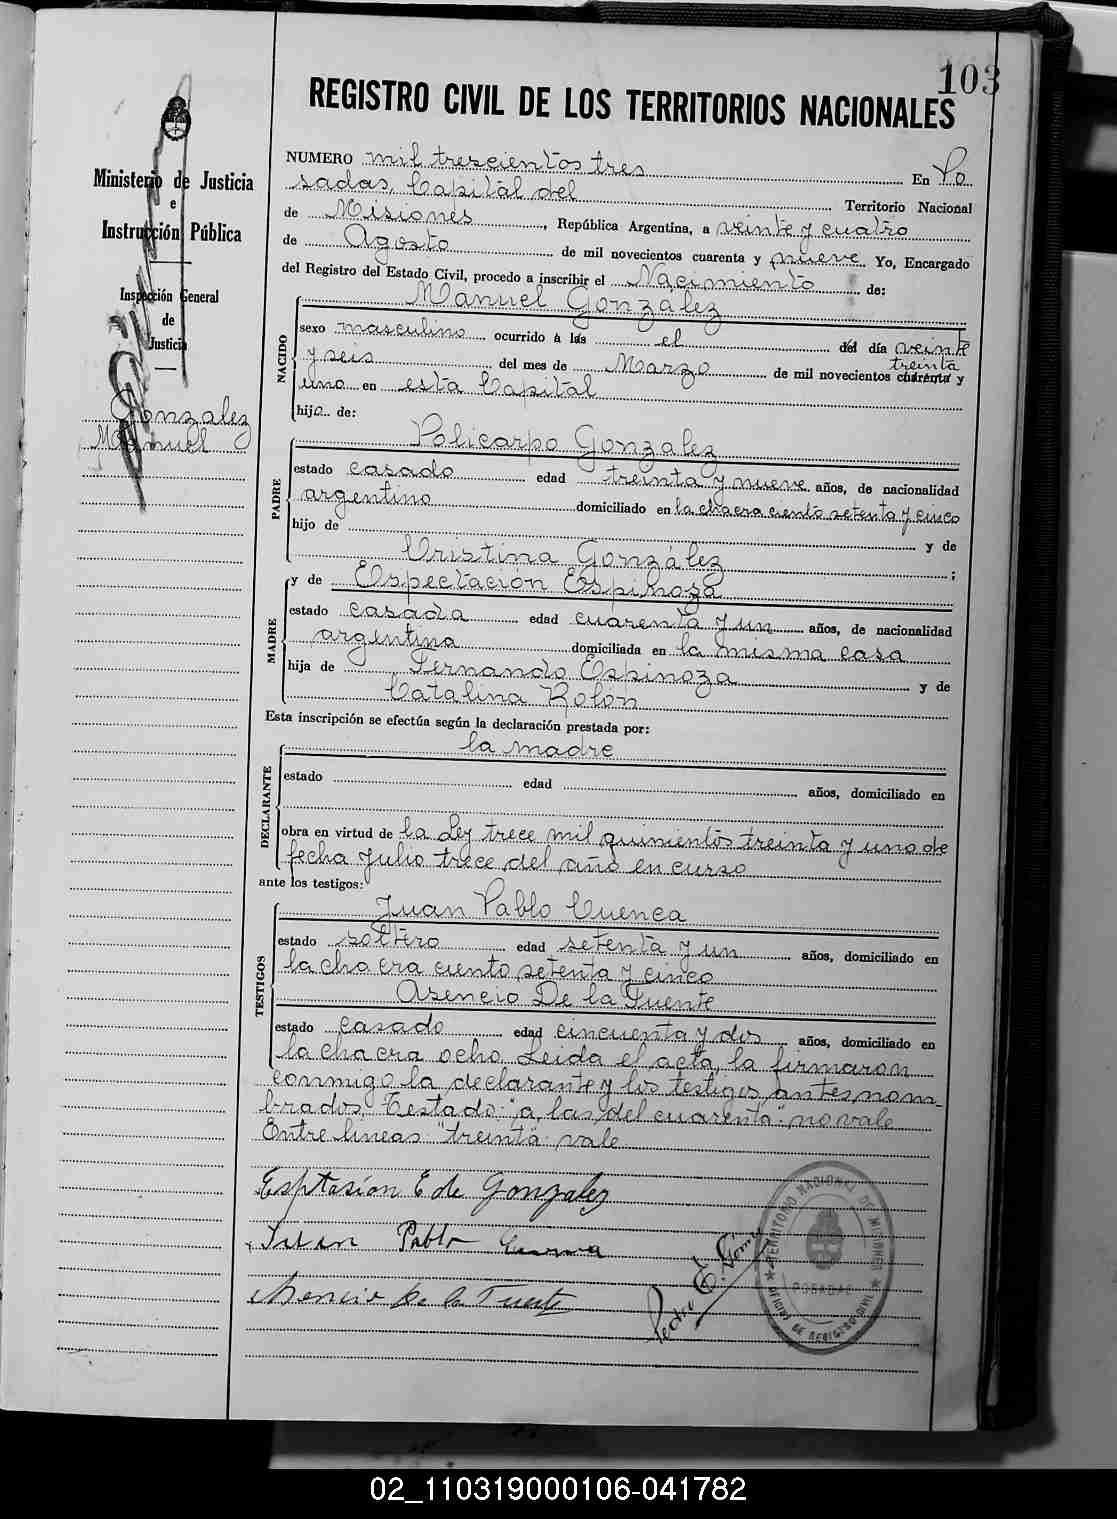 103
REGISTRO CIVIL DE LOS TERRITORIOS NACIONALES
Ministerio de Justicia
e
Instrucción Pública
Inspección General
de
Justicia
Gonzalez
Manuel
NUMERO mil trescientos tres En Po
sadas, Capital del Territorio Nacional
de Misiones, República Argentina, a veinte y cuatro
de Agosto de mil novecientos cuarenta y nueve Yo, Encargado
del Registro del Estado Civil, procedo a inscribir el Nacimiento de:
NACIDO
Manuel González
sexo masculino ocurrido a las el del día veinte
treinta
y seis del mes de Marzo de mil novecientos cuarenta y
uno en esta Capital
hijo de:
PADRE
Policarpo Gonzalez
estado casado edad treinta y nueve años, de nacionalidad
argentino domiciliado en la chacra ciento setenta y cinco
hijo de y de
Cristina González ;
MADRE
y de Espectación Espinoza
estado casada edad cuarenta y un años, de nacionalidad
argentina domiciliada en la misma casa
hija de Fernando Espinoza y de
Catalina Rolón
Esta inscripción se efectúa según la declaración prestada por:
DECLARANTE
la madre
estado edad años, domiciliado en
obra en virtud de la Ley trece mil quinientos treinta y uno de
fecha Julio trece del año en curso
ante los testigos:
TESTIGOS
Juan Pablo Cuenca
estado soltero edad setenta y un años, domiciliado en
la chacra ciento setenta y cinco
Asencio De la Fuente
estado casado edad cincuenta y dos años, domiciliado en
la chacra ocho. Leida el acta, la firmaron
conmigo la declarante y los testigos antes nom-
brados. Testado: "a las, del cuarenta": no vale
Entre líneas: "treinta": vale
Esptasion E de Gonzalez
Juan Pablo Cuenca
Asencio De la Fuente
Pedro E.
TERRITORIO NACIONAL DE MISIONES
POSADAS
OFICINA DE REGISTRO CIVIL
02_110319000106-041782